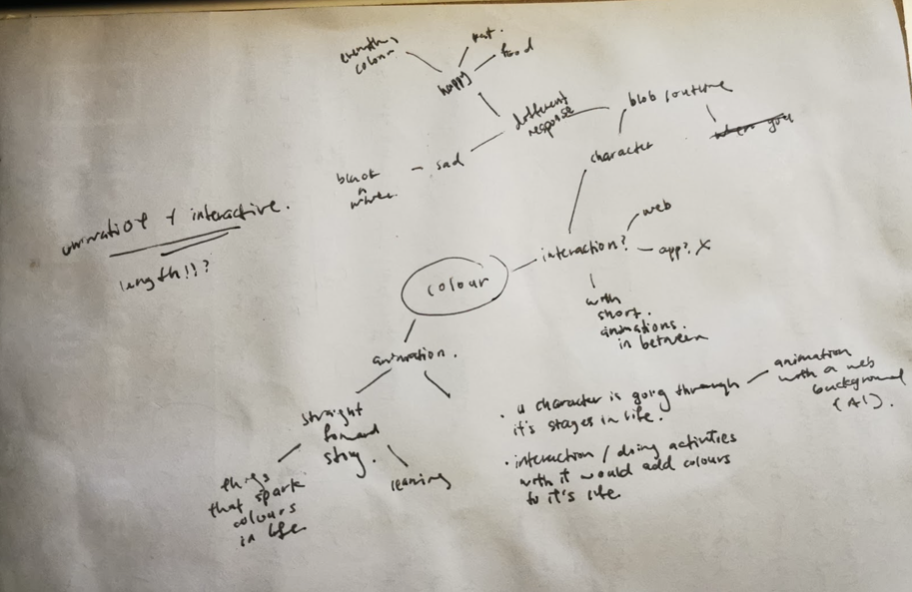 colour
happy
food
different
response
blob routine
character
sad
black
n
white
animation & interactive.
length!!?
interaction?
web
app? X
with
short.
animations.
in between
animation.
straight
forward
story.
things
that spark
colours
in life
. a character is going through
it's stages in life.
animation
with a web
background
(AI).
. interaction / doing activities
with it would add colours
to it's life